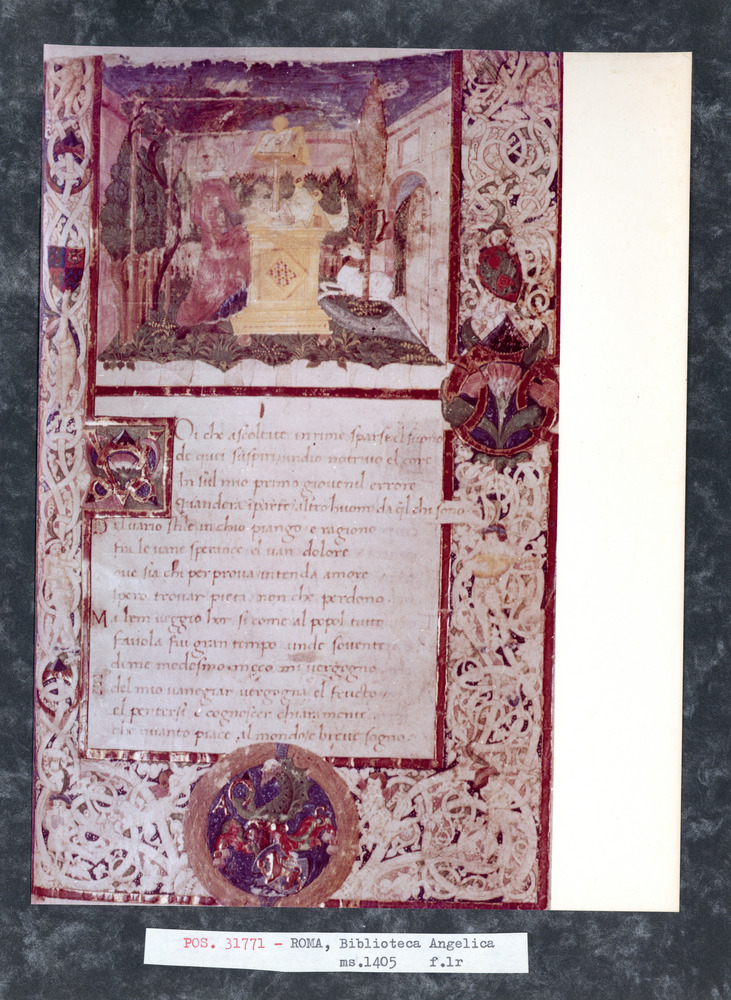 Oi che ascoltate in rime sparse el suono
de quei suspiri undio notriuo el core
In sul mio primo giouenil errore
Quandera iparte altro huom da ql chi sono
Del uario stile in chio piango e ragiono
fra le uane sperance el uan dolore
oue sia chi per proua intenda amore
spero trouar pieta non che perdono
Ma ben ueggio hor si come al popol tutto
fauola fui gran tempo unde souente
di me medesmo meco mi uergogno
E del mio uanegiar uergogna el fructo
el pentersi e cognoscer chiaramente
che quanto piace al mondo e breue sogno
A
POS. 31771 - ROMA, Biblioteca Angelica
ms.1405 f.1r